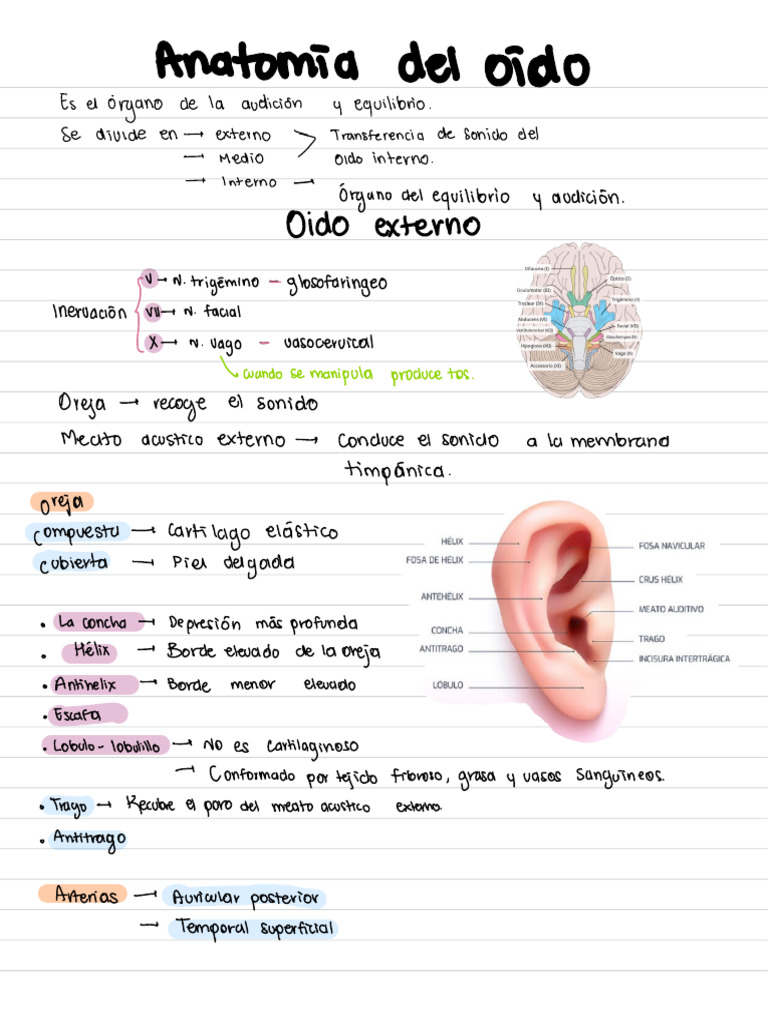 Anatomīa del oīdo
Es el órgano de la audición y equilibrio.
Se divide en → externo > Transferencia de sonido del
→ Medio oido interno.
→ Interno → Órgano del equilibrio y audición.
Oido externo
Inervación
V → N. trigémino – glosofaringeo
VII → N. facial
X → N. vago – vasocervical
cuando se manipula produce tos.
Olfatorio (I)
Óptico (II)
Oculomotor (III)
Troclear (IV)
Trigémino (V)
Abducens (VI)
Facial (VII)
Vestibulococlear (VIII)
Glosofaríngeo (IX)
Hipogloso (XII)
Vago (X)
Accesorio (XI)
Oreja → recoge el sonido
Meato acustico externo → Conduce el sonido a la membrana
timpánica.
Oreja
Compuesta → Cartílago elástico
Cubierta → Piel delgada
• La concha → Depresión más profunda
• Hélix → Borde elevado de la oreja
• Antihelix → Borde menor elevado
• Escafa
• Lobulo - lobulillo → No es cartilaginoso
→ Conformado por tejido fibroso, grasa y vasos sanguíneos.
• Trago → Recubre el poro del meato acustico externo.
• Antitrago
HÉLIX
FOSA DE HÉLIX
ANTEHÉLIX
CONCHA
ANTITRAGO
LÓBULO
FOSA NAVICULAR
CRUS HÉLIX
MEATO AUDITIVO
TRAGO
INCISURA INTERTRÁGICA
Arterias → Auricular posterior
→ Temporal superficial